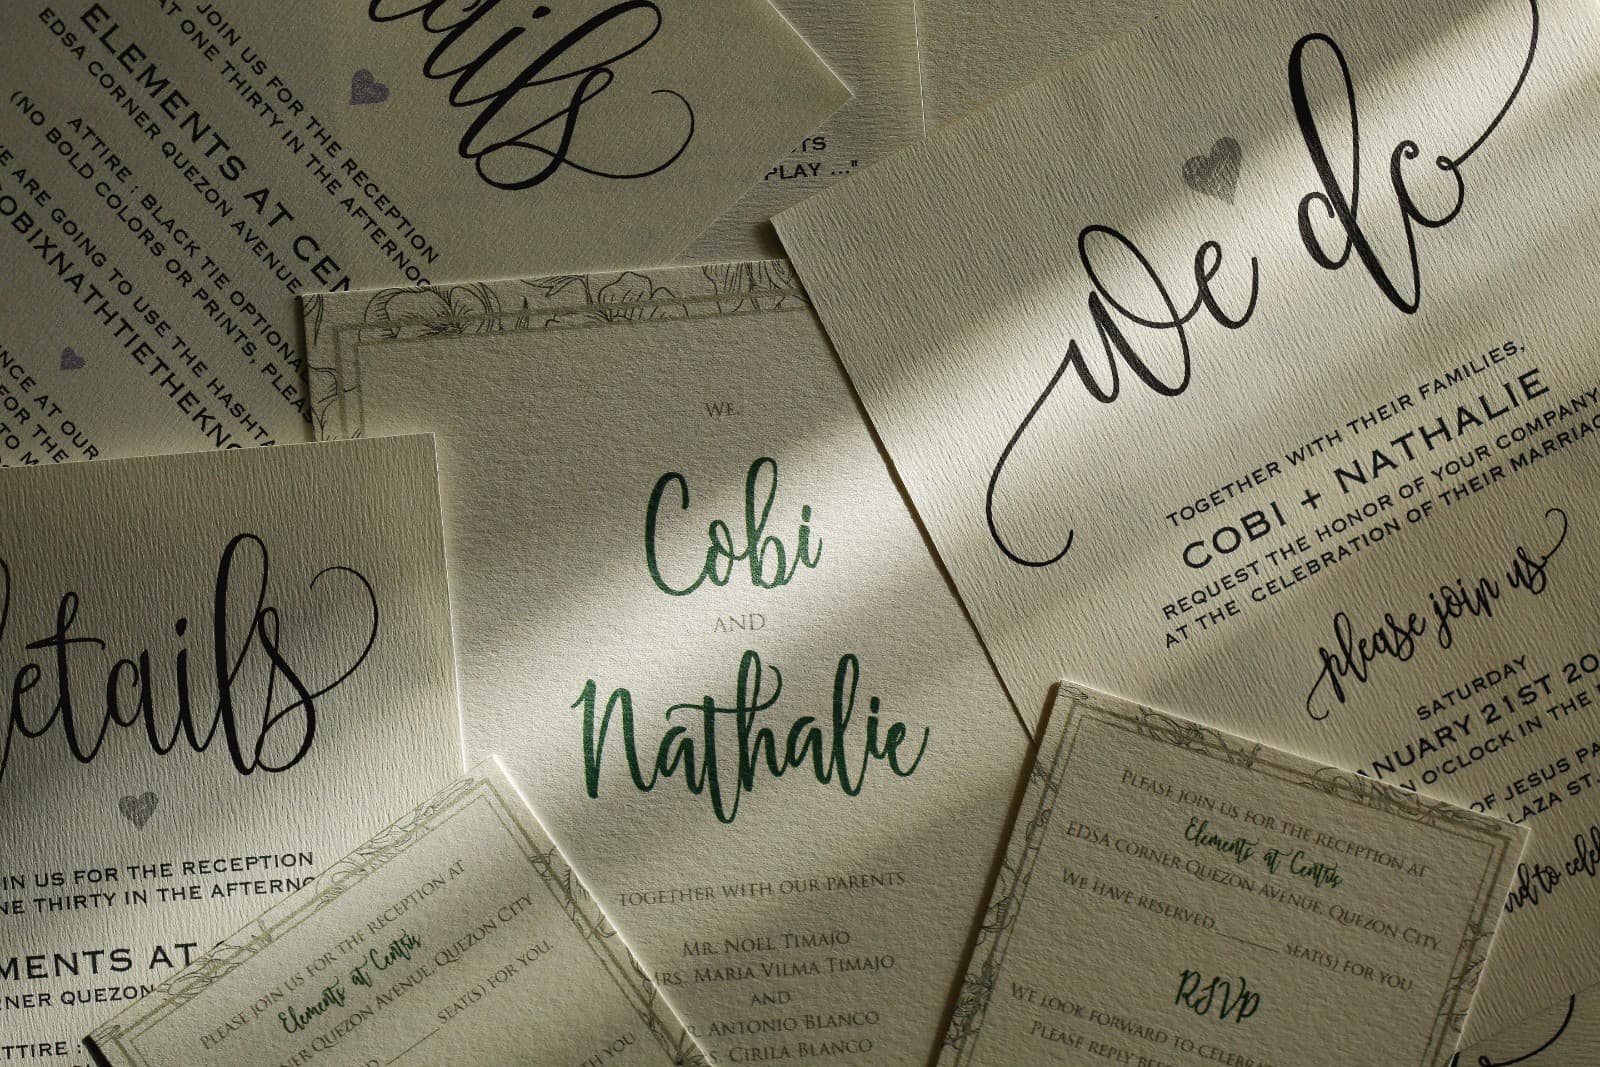 details
JOIN US FOR THE RECEPTION
AT ONE THIRTY IN THE
ELEMENTS AT
EDSA CORNER QUEZON AVENUE
ATTIRE : BLACK TIE OPTIONAL
(NO BOLD COLORS OR PRINTS,
ARE GOING TO USE THE
AT OUR
FOR THE
TO
PLAY ..."
we do
TOGETHER WITH THEIR FAMILIES,
COBI + NATHALIE
REQUEST THE HONOR OF YOUR COMPANY
AT THE CELEBRATION OF THEIR
please join us
SATURDAY
21ST
O'CLOCK IN THE
OF JESUS
ST.
to
WE
Cobi
AND
Nathalie
TOGETHER WITH OUR PARENTS
MR. NOEL TIMAJO
MRS. MARIA VILMA TIMAJO
AND
ANTONIO BLANCO
CIRILA BLANCO
details
US FOR THE RECEPTION
THIRTY IN THE
AT
QUEZON
:
PLEASE JOIN US FOR THE RECEPTION AT
Elements at Centris
CORNER QUEZON AVENUE, QUEZON CITY
SEAT(S) FOR YOU.
YOU
PLEASE JOIN US FOR THE RECEPTION AT
Elements at Centris
EDSA CORNER QUEZON AVENUE, QUEZON CITY.
WE HAVE RESERVED______ SEAT(S) FOR YOU.
RSVP
WE LOOK FORWARD TO
PLEASE REPLY